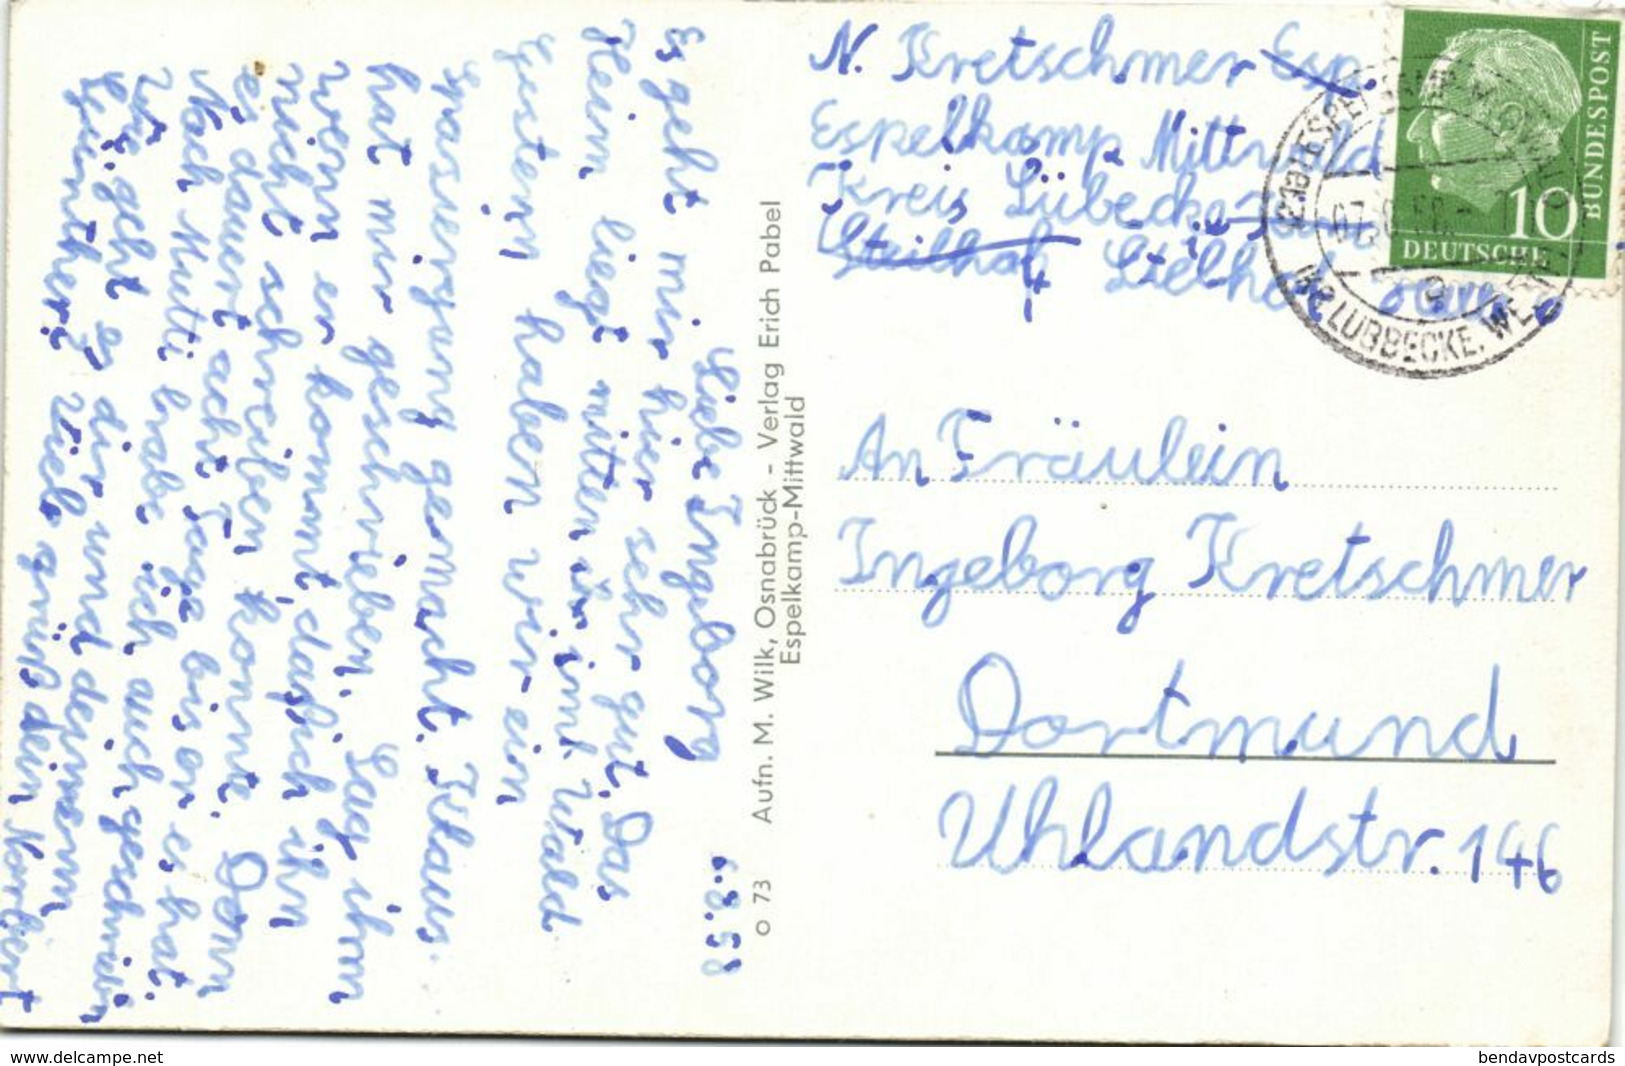 6.8.58
Liebe Ingeborg
Es geht mir hier sehr gut. Das
Heim liegt mitten im Wald
Gestern haben wir ein
spassergang gemacht. Klaus
hat mir geschrieben. Sag ihm
wenn er kommt, daß ich ihn
nicht schreiben konnte. Denn
es dauert acht Tage bis er es hat.
Nach Mutti habe ich auch geschrieben
Wie geht es dir und deinem
Günther? Viele grüß dein Norbert
O 73 Aufn. M. Wilk, Osnabrück - Verlag Erich Pabel
Espelkamp-Mittwald
N. Kretschmer Esp
Espelkamp Mittwald
Kreis Lübecke
Steilhof Stelhorst
DEUTSCHE BUNDESPOST
10
LÜBBECKE, WESTF
An Fräulein
Ingeborg Kretschmer
Dortmund
Uhlandstr. 146
www.delcampe.net
bendavpostcards